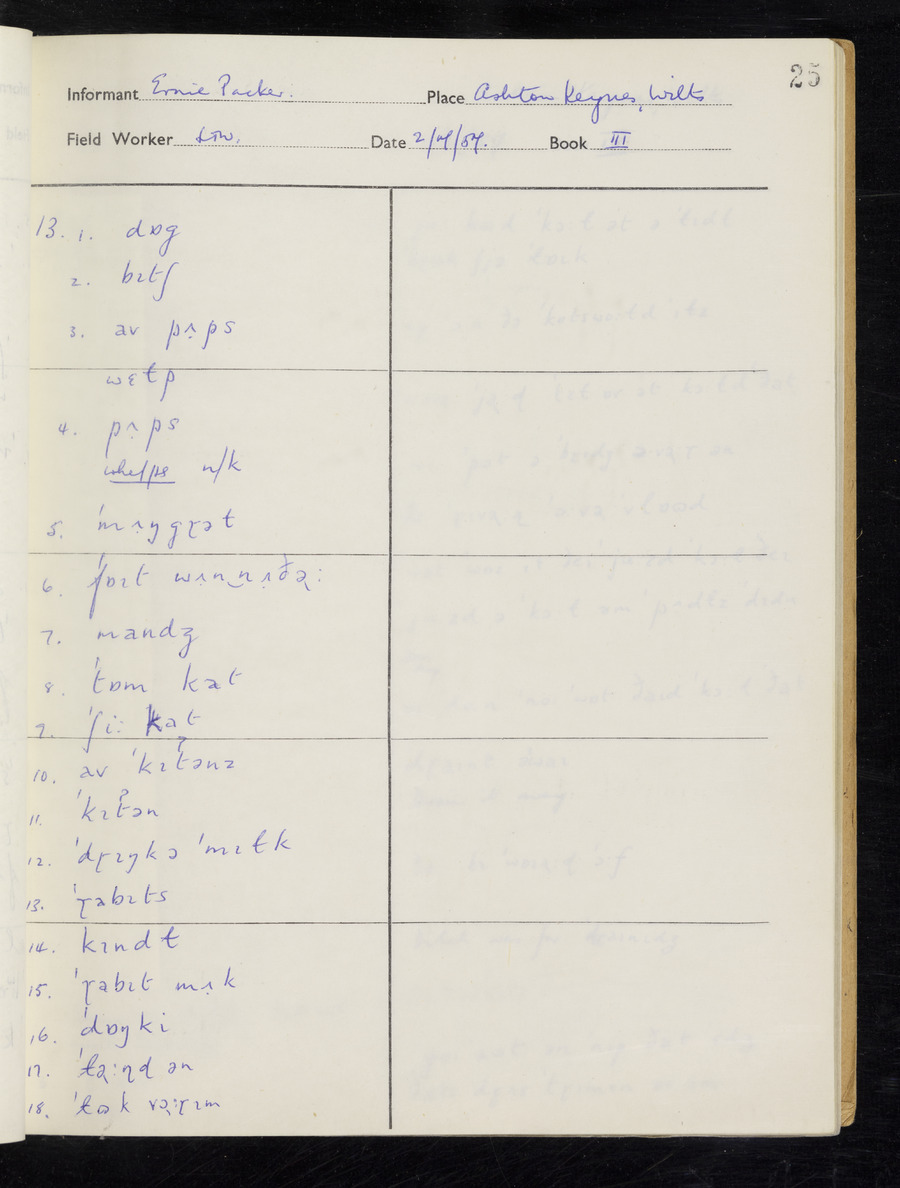 25
Informant Ernie Packer. Place Ashton Keynes, Wilts
Field Worker Date 2/4/57. Book III
13. 1. dɒg
2. bɪtʃ
3. av pʌ̣ps
wɛɫp
4. pʌ̣ps
whelps n/k
5. ˈmʌ̣ŋgɽəɫ
6. ˈfɒɪt wʌ̣n‿nʌ̣ðə̢:
7. mandʒ
8. ˈtɒm kat
9. ˈʃi: kat
10. av ˈkɪtʔənz
11. ˈkɪtʔən
12. ˈdɽɪŋkə ˈmɪɫk
13. ˈɽabɪts
14. kɪndɫ
15. ˈɽabɪt mʌ̣k
16. ˈdɒŋki
17. ˈtə̢:ɳd ən
18.